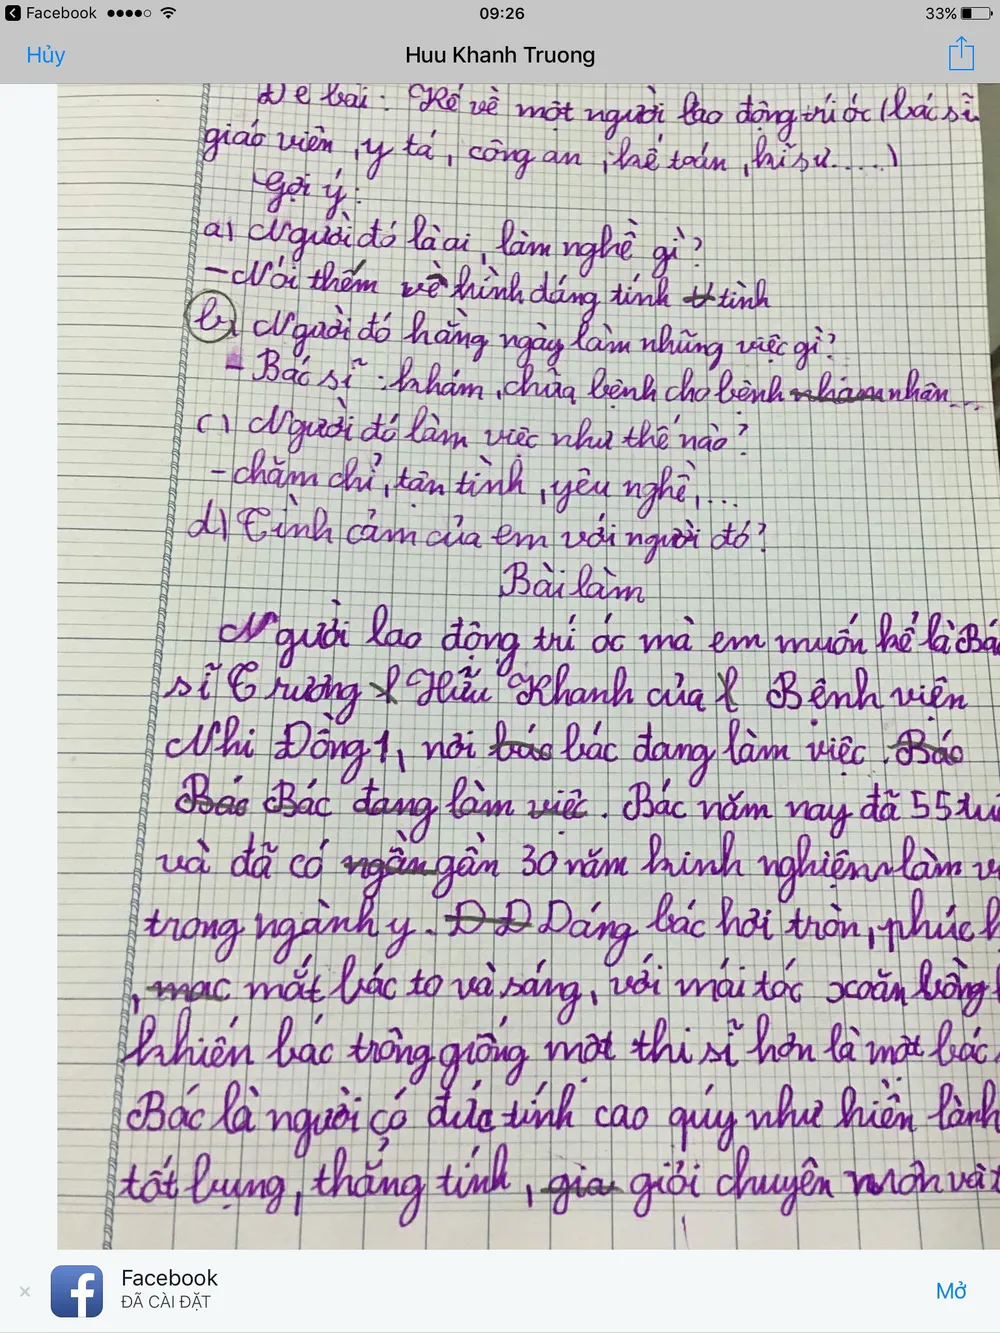 Facebook 09:26 33%
Hủy Huu Khanh Truong
Đề bài: Kể về một người lao động trí óc (bác sĩ
giáo viên, y tá, công an, kế toán, kĩ sư.....)
Gợi ý:
a) Người đó là ai, làm nghề gì?
- Nói thêm về hình dáng tính tình
b) Người đó hằng ngày làm những việc gì?
- Bác sĩ: khám, chữa bệnh cho bệnh nhân...
c) Người đó làm việc như thế nào?
- chăm chỉ, tận tình, yêu nghề,...
d) Tình cảm của em với người đó?
Bài làm
Người lao động trí óc mà em muốn kể là Bá
sĩ Trương Hữu Khanh của Bệnh viện
Nhi Đồng 1, nơi bác bác đang làm việc. Bác
Bác Bác đang làm việc. Bác năm nay đã 55 tu
và đã có ngần gần 30 năm kinh nghiệm làm v
trong ngành y. D D Dáng bác hơi tròn, phúc h
, mac mắt bác to và sáng, với mái tóc xoăn bồng
khiến bác trông giống một thi sĩ hơn là một bác
Bác là người có đức tính cao quý như hiền lành
tốt bụng, thẳng tính, gia giỏi chuyên môn và
Facebook
ĐÃ CÀI ĐẶT
Mở